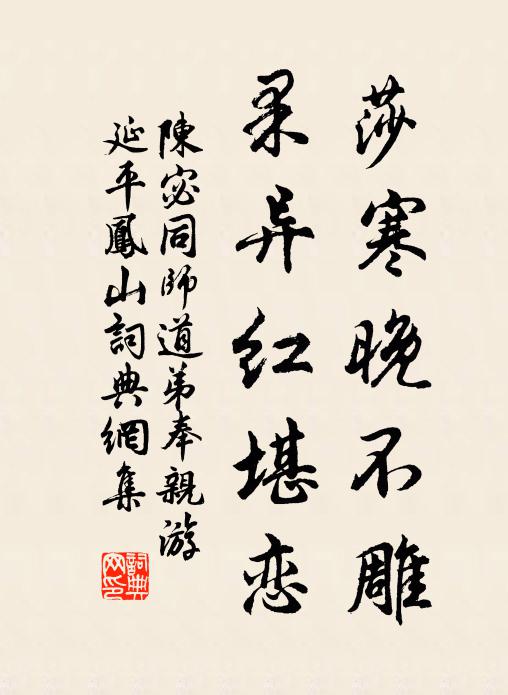 莎寒晚不雕
柔异红堪恋
陳宓同師道弟奉親游
延平鳳山詞典網集
詞典网印